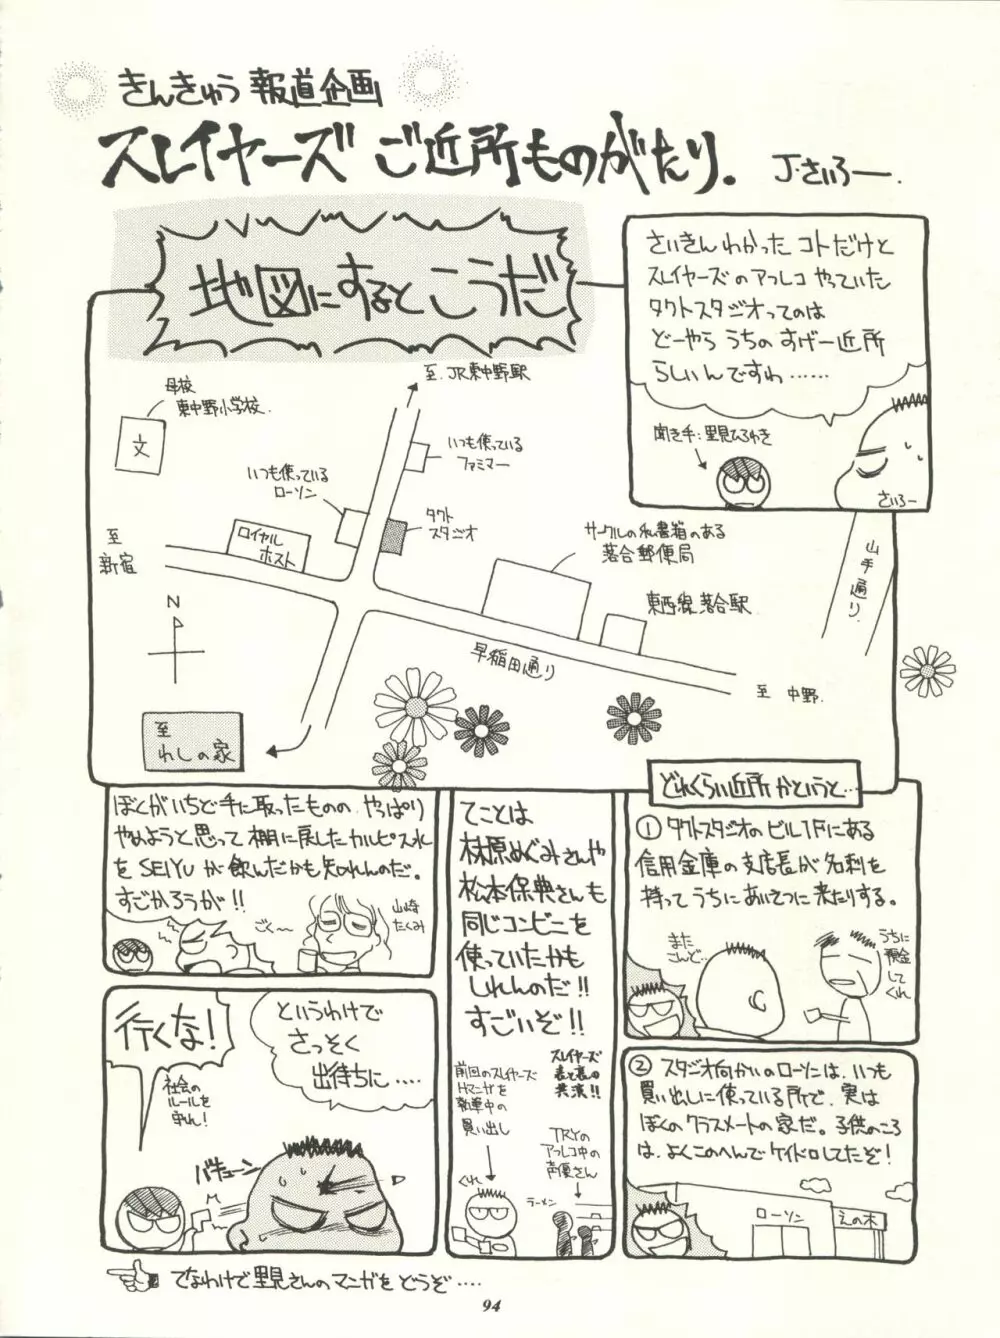 きんきゅう報道企画
スレイヤーズ ご近所ものがたり.
J・さいろー.
地図にするとこうだ
さいきんわかったコトだけと
スレイヤーズのアフレコやっていた
タクトスタジオってのは
どーやらうちのすげー近所
らしいんですわ……
聞き手:里見ひろゆき
さいろー
至 JR東中野駅
母校
東中野小学校.
文
いつも使っている
ファミマー
いつも使っている
ローソン
タクト
スタジオ
ロイヤル
ホスト
サークルの私書箱のある
落合郵便局
山手通り
至
新宿
東西線落合駅
N
早稲田通り
至 中野.
至
わしの家
どれくらい近所かというと…
① タクトスタジオのビル1Fにある
信用金庫の支店長が名刺を
持ってうちにあいさつに来たりする。
また
こんど…
うちに
預金
して
くれ
② スタジオ向かいのローソンは、いつも
買い出しに使っている所で、実は
ぼくのクラスメートの家だ。子供のころ
は、よくこのへんでケイドロしてたぞ!
ローソン
えの木
てことは
林原めぐみさんや
松本保典さんも
同じコンビニを
使っていたかも
しれんのだ!!
すごいぞ!!
前回のスレイヤーズ
Hマンガを
執筆中の
買い出し
スレイヤーズ
表と裏の
共演!!
TRYの
アフレコ中の
声優さん
ラーメン
ぼくがいちど手に取ったものの、やっぱり
やめようと思って棚に戻したカルピス水
をSEIYUが飲んだかも知れんのだ。
すごかろうが!!
ごく〜
山崎
たくみ
というわけで
さっそく
出待ちに….
行くな!
社会の
ルールを
守れ!
バキューン
でなわけで里見さんのマンガをどうぞ….
94